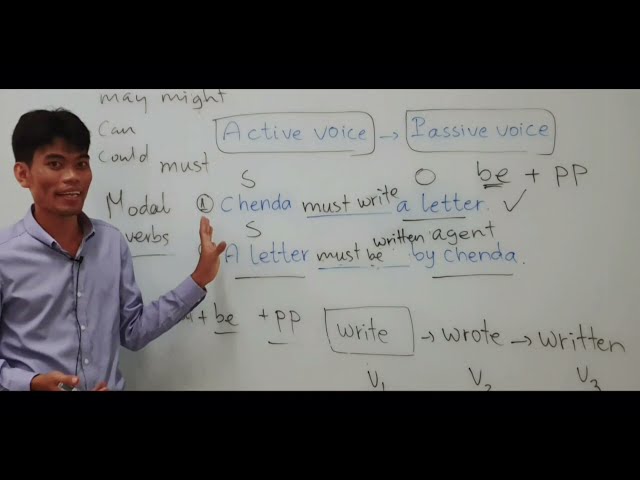 may might
can
could must
Active voice → Passive voice
S O be + pp
Modal ① Chenda must write a letter. ✓
verbs S written agent
A letter must be by chenda.
+ be + pp write → wrote → written
V1 V2 V3